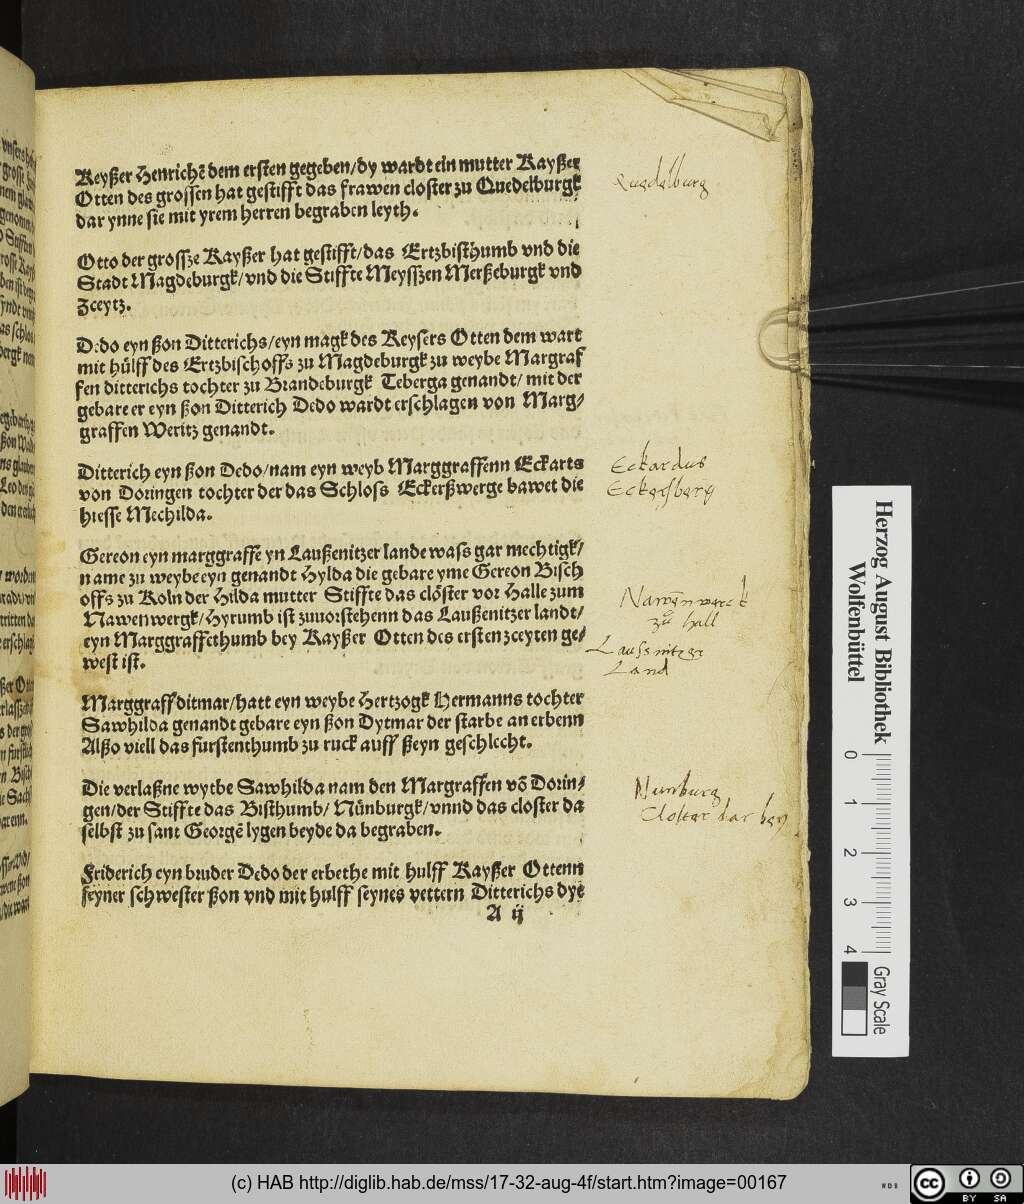 Keyßer Henrichē dem ersten gegeben/dy wardt ein mutter Kayßer
Otten des grossen hat gestifft das frawen closter zu Quedelburgk
dar ynne sie mit yrem herren begraben leyth.
Quedelburg
Otto der grossze Kayßer hat gestifft/das Ertzbisthumb vnd die
Stadt Magdeburgk/vnd die Stiffte Meysszen Merßeburgk vnd
Zceytz.
Dedo eyn ßon Ditterichs/eyn magk des Keysers Otten dem wart
mit hülff des Ertzbischoffs zu Magdeburgk zu weybe Margraf
fen ditterichs tochter zu Brandeburgk Teberga genandt/mit der
gebare er eyn ßon Ditterich Dedo wardt erschlagen von Marg⸗
graffen Weritz genandt.
Ditterich eyn ßon Dedo/nam eyn weyb Marggraffenn Eckarts
von Doringen tochter der das Schloss Eckerßwerge bawet die
hiesse Mechilda.
Eckardus
Eckersberg
Gereon eyn marggraffē yn Laußenitzer lande wass gar mechtigk/
name zu weybe eyn genandt Hylda die gebare yme Gereon Bisch
offs zu Koln der Hilda mutter Stiffte das clöster vor Halle zum
Nawenwergk/Hyrumb ist zuuorstehenn das Laußenitzer landt/
eyn Marggraffethumb bey Kayßer Otten des ersten zceyten ge⸗
west ist.
Nawenwerck
zu hall
Laussnitzer
Land
Marggraff ditmar/hatt eyn weybe Hertzogk Hermanns tochter
Sawhilda genandt gebare eyn ßon Dytmar der starbe an erbenn
Alßo viell das furstenthumb zu ruck auff ßeyn geschlecht.
Die verlaßne wytbe Sawhilda nam den Margraffen vō Dorin⸗
gen/der Stiffte das Bisthumb/Nünburgk/vnnd das closter da
selbst zu sant Georgē lygen beyde da begraben.
Nunburg
Closter dar bey
Friderich eyn bruder Dedo der erbethe mit hulff Kayßer Ottenn
seyner schwester ßon vnd mit hulff seynes vettern Ditterichs dye
A ij
Herzog August Bibliothek
Wolfenbüttel
0 1 2 3 4
Gray Scale
(c) HAB http://diglib.hab.de/mss/17-32-aug-4f/start.htm?image=00167
WDB
cc BY SA